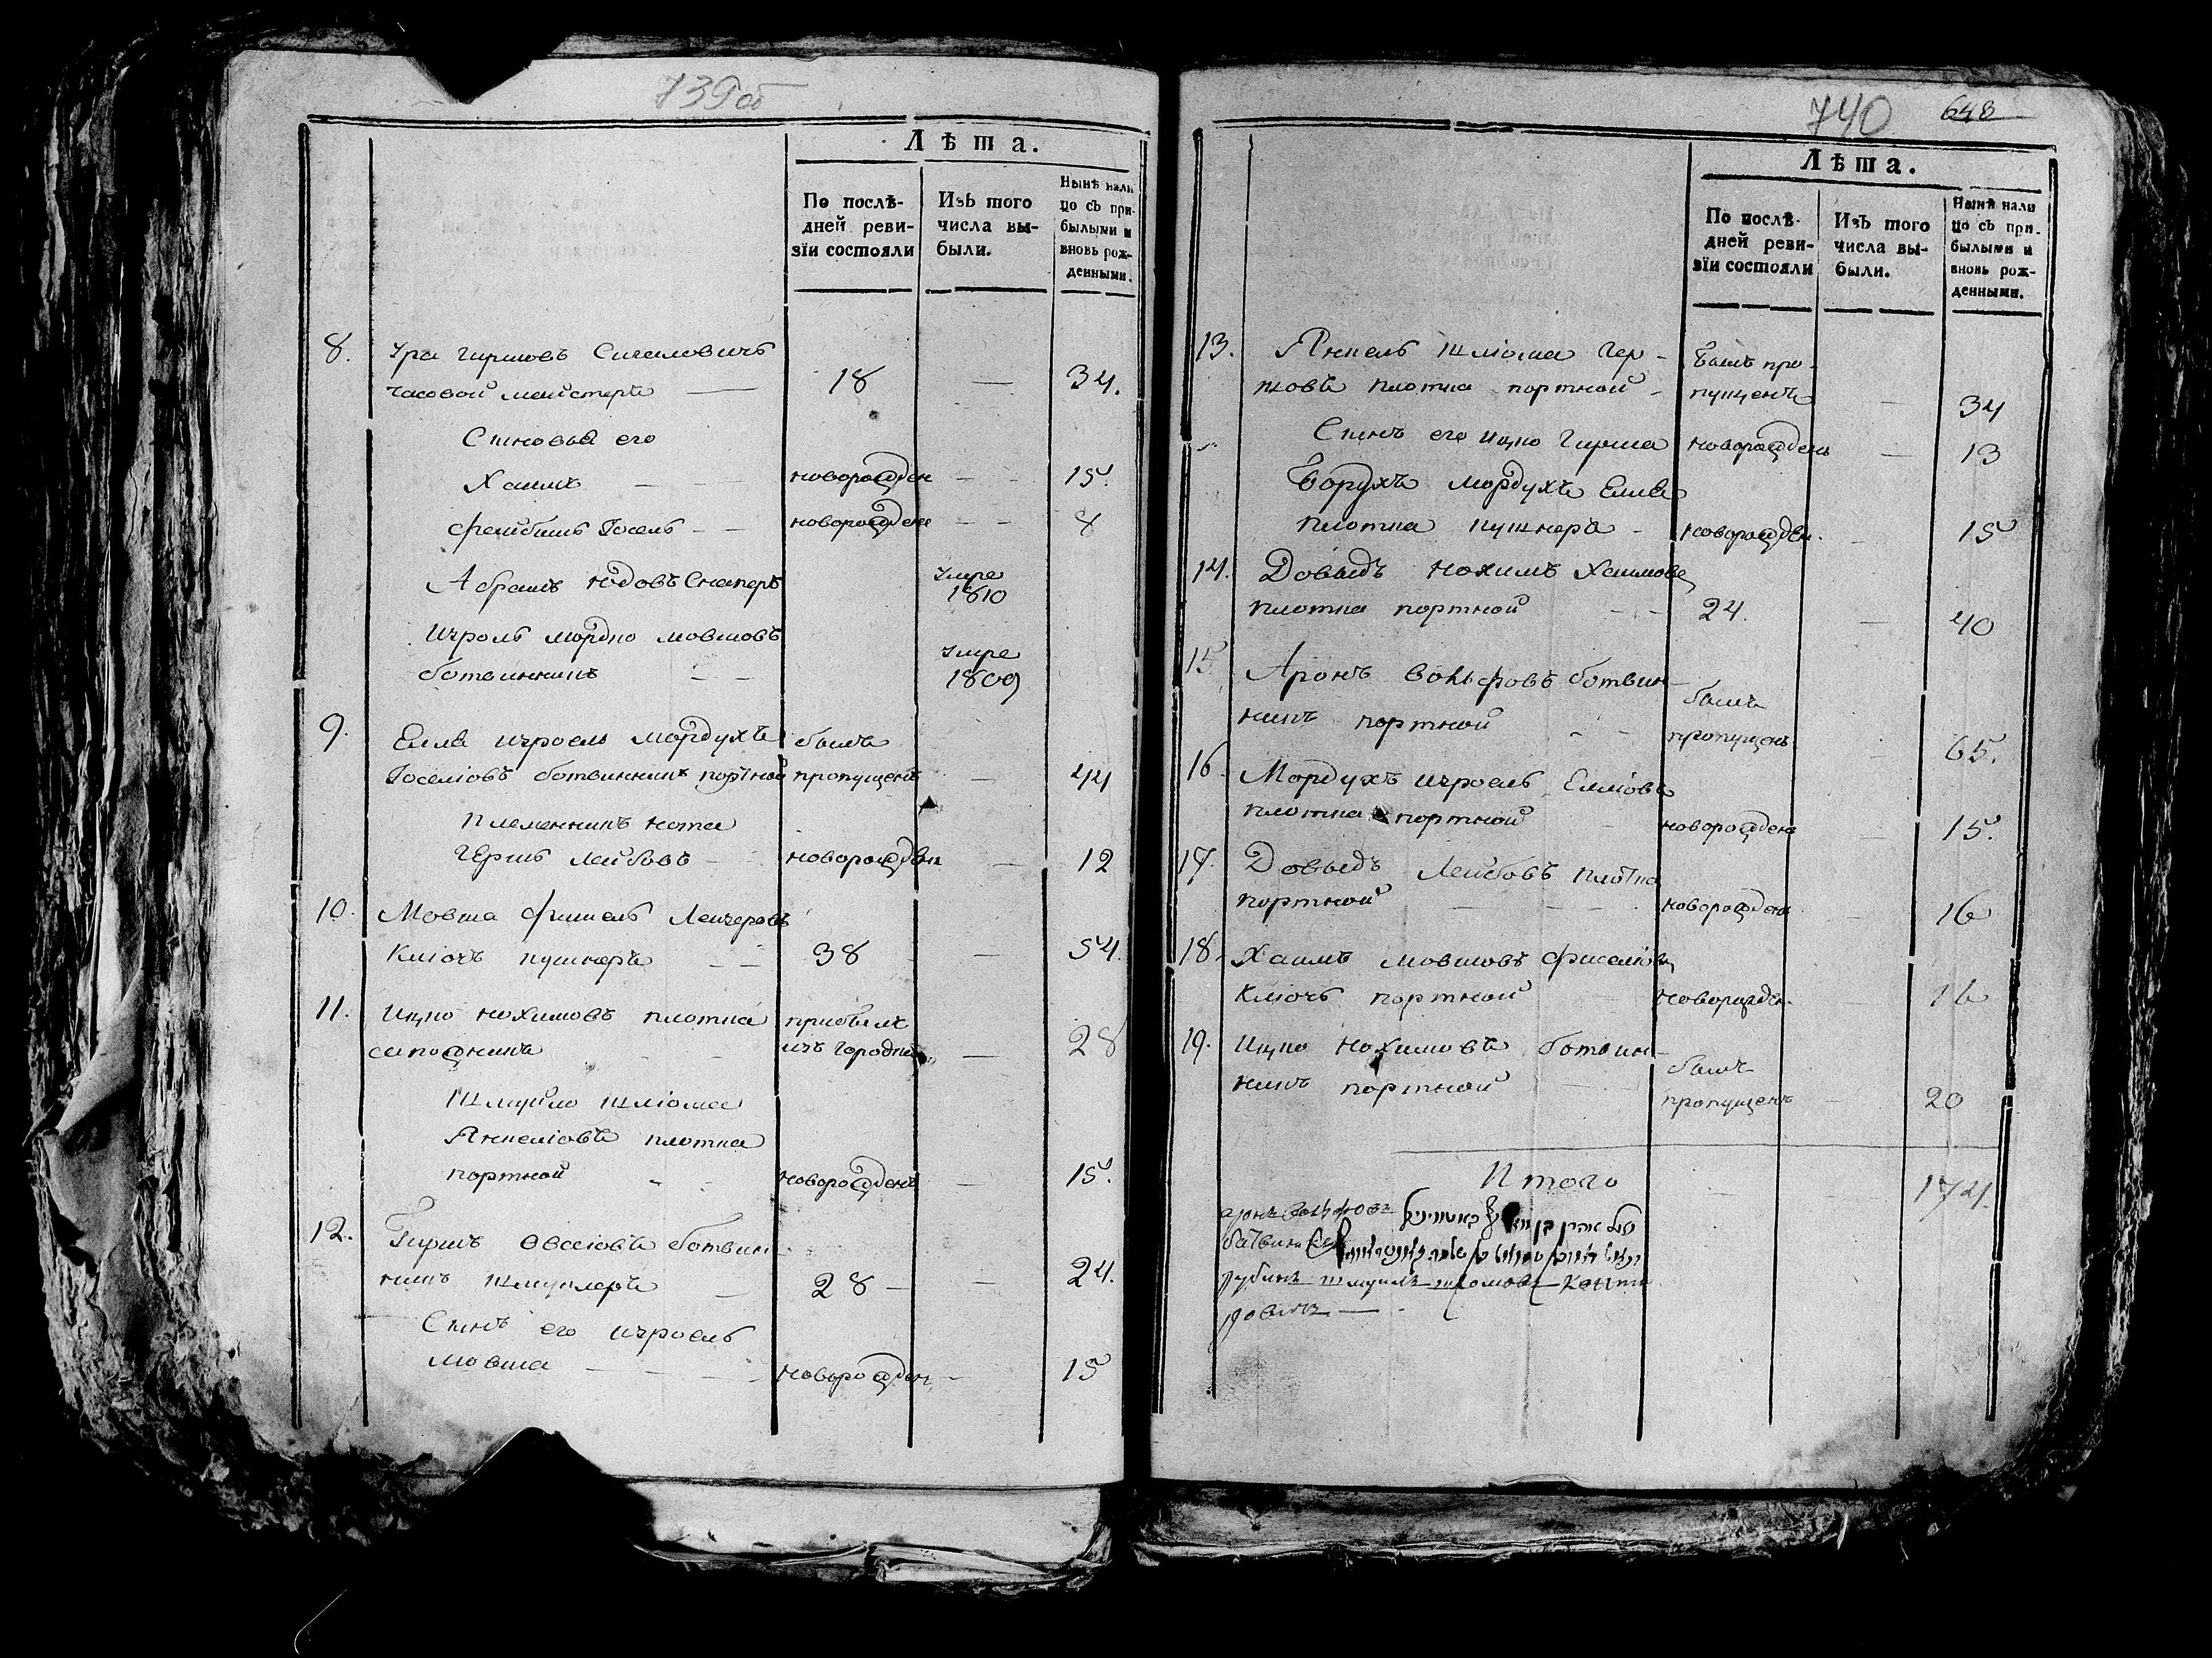 739об
Лѣта.
По послѣ-
дней реви-
зіи состояли
Изъ того
числа вы-
были.
Нынѣ нали
цо съ при-
былыми и
вновь рож-
денными.
8. Ура Гиршовъ
часовой мейстеръ — 18 — 34.
Сыновья его
Хаимъ — — новорожден — — 15.
Фейбишъ Іосель — — новорожден — — 8
Абрамъ Юдовъ Снаперъ умре
1810
Изроль Мордко Мовшовъ
ботвинникъ — — умре
1809
9. Еиля Израель Мордухъ былъ
Іоселіовъ ботвинникъ портной пропущенъ — 44
Племенникъ Нота
Гершъ Лейбовъ — новорожден — 12
10. Мовша Фишель Лейзеровъ
Кліочъ пушнеръ — — 38 — 54.
11. Ицко Нохимовъ плотка прибылъ
сапожникъ — — изъ Городни — 28
Шмуйло Шліома
Янкеліовъ плотка
портной новорожденъ — 15.
12. Гиршъ Овсеіовъ ботвин
никъ шмуклеръ — 28 — — 24.
Сынъ его Израель
Мовша — — — новорожден — 15
740 648
Лѣта.
По послѣ-
дней реви-
зіи состояли
Изъ того
числа вы-
были.
Нынѣ нали
цо съ при-
былыми и
вновь рож-
денными.
13. Янкель Шліома Гер- былъ про-
шовъ плотка портной - пущенъ — 34
Сынъ его Ицко Гирша новорожденъ — 13
Борухъ Мордухъ Еиля
плотка пушнеръ - новорожден. 15
14. Довыдъ Нохимъ Хаимовъ
плотка портной — - 24. — 40
15 Аронъ Вольфовъ ботвин- былъ
никъ портной - - пропущенъ 65.
16 Мордухъ Израель Еиліовъ
плотка портной новорожденъ — 15.
17. Довыдъ Лейбовъ плотка
портной — — — новорожденъ — 16
18. Хаимъ Мовшовъ Фишеліовъ
Кліочъ портной — новорожден. 16
19. Ицко Нохимовъ ботвин- былъ
никъ портной — пропущенъ — 20
Итого — — 174.
аронъ Вольфовъ
батвиник
рубинъ шмуилъ шломовъ